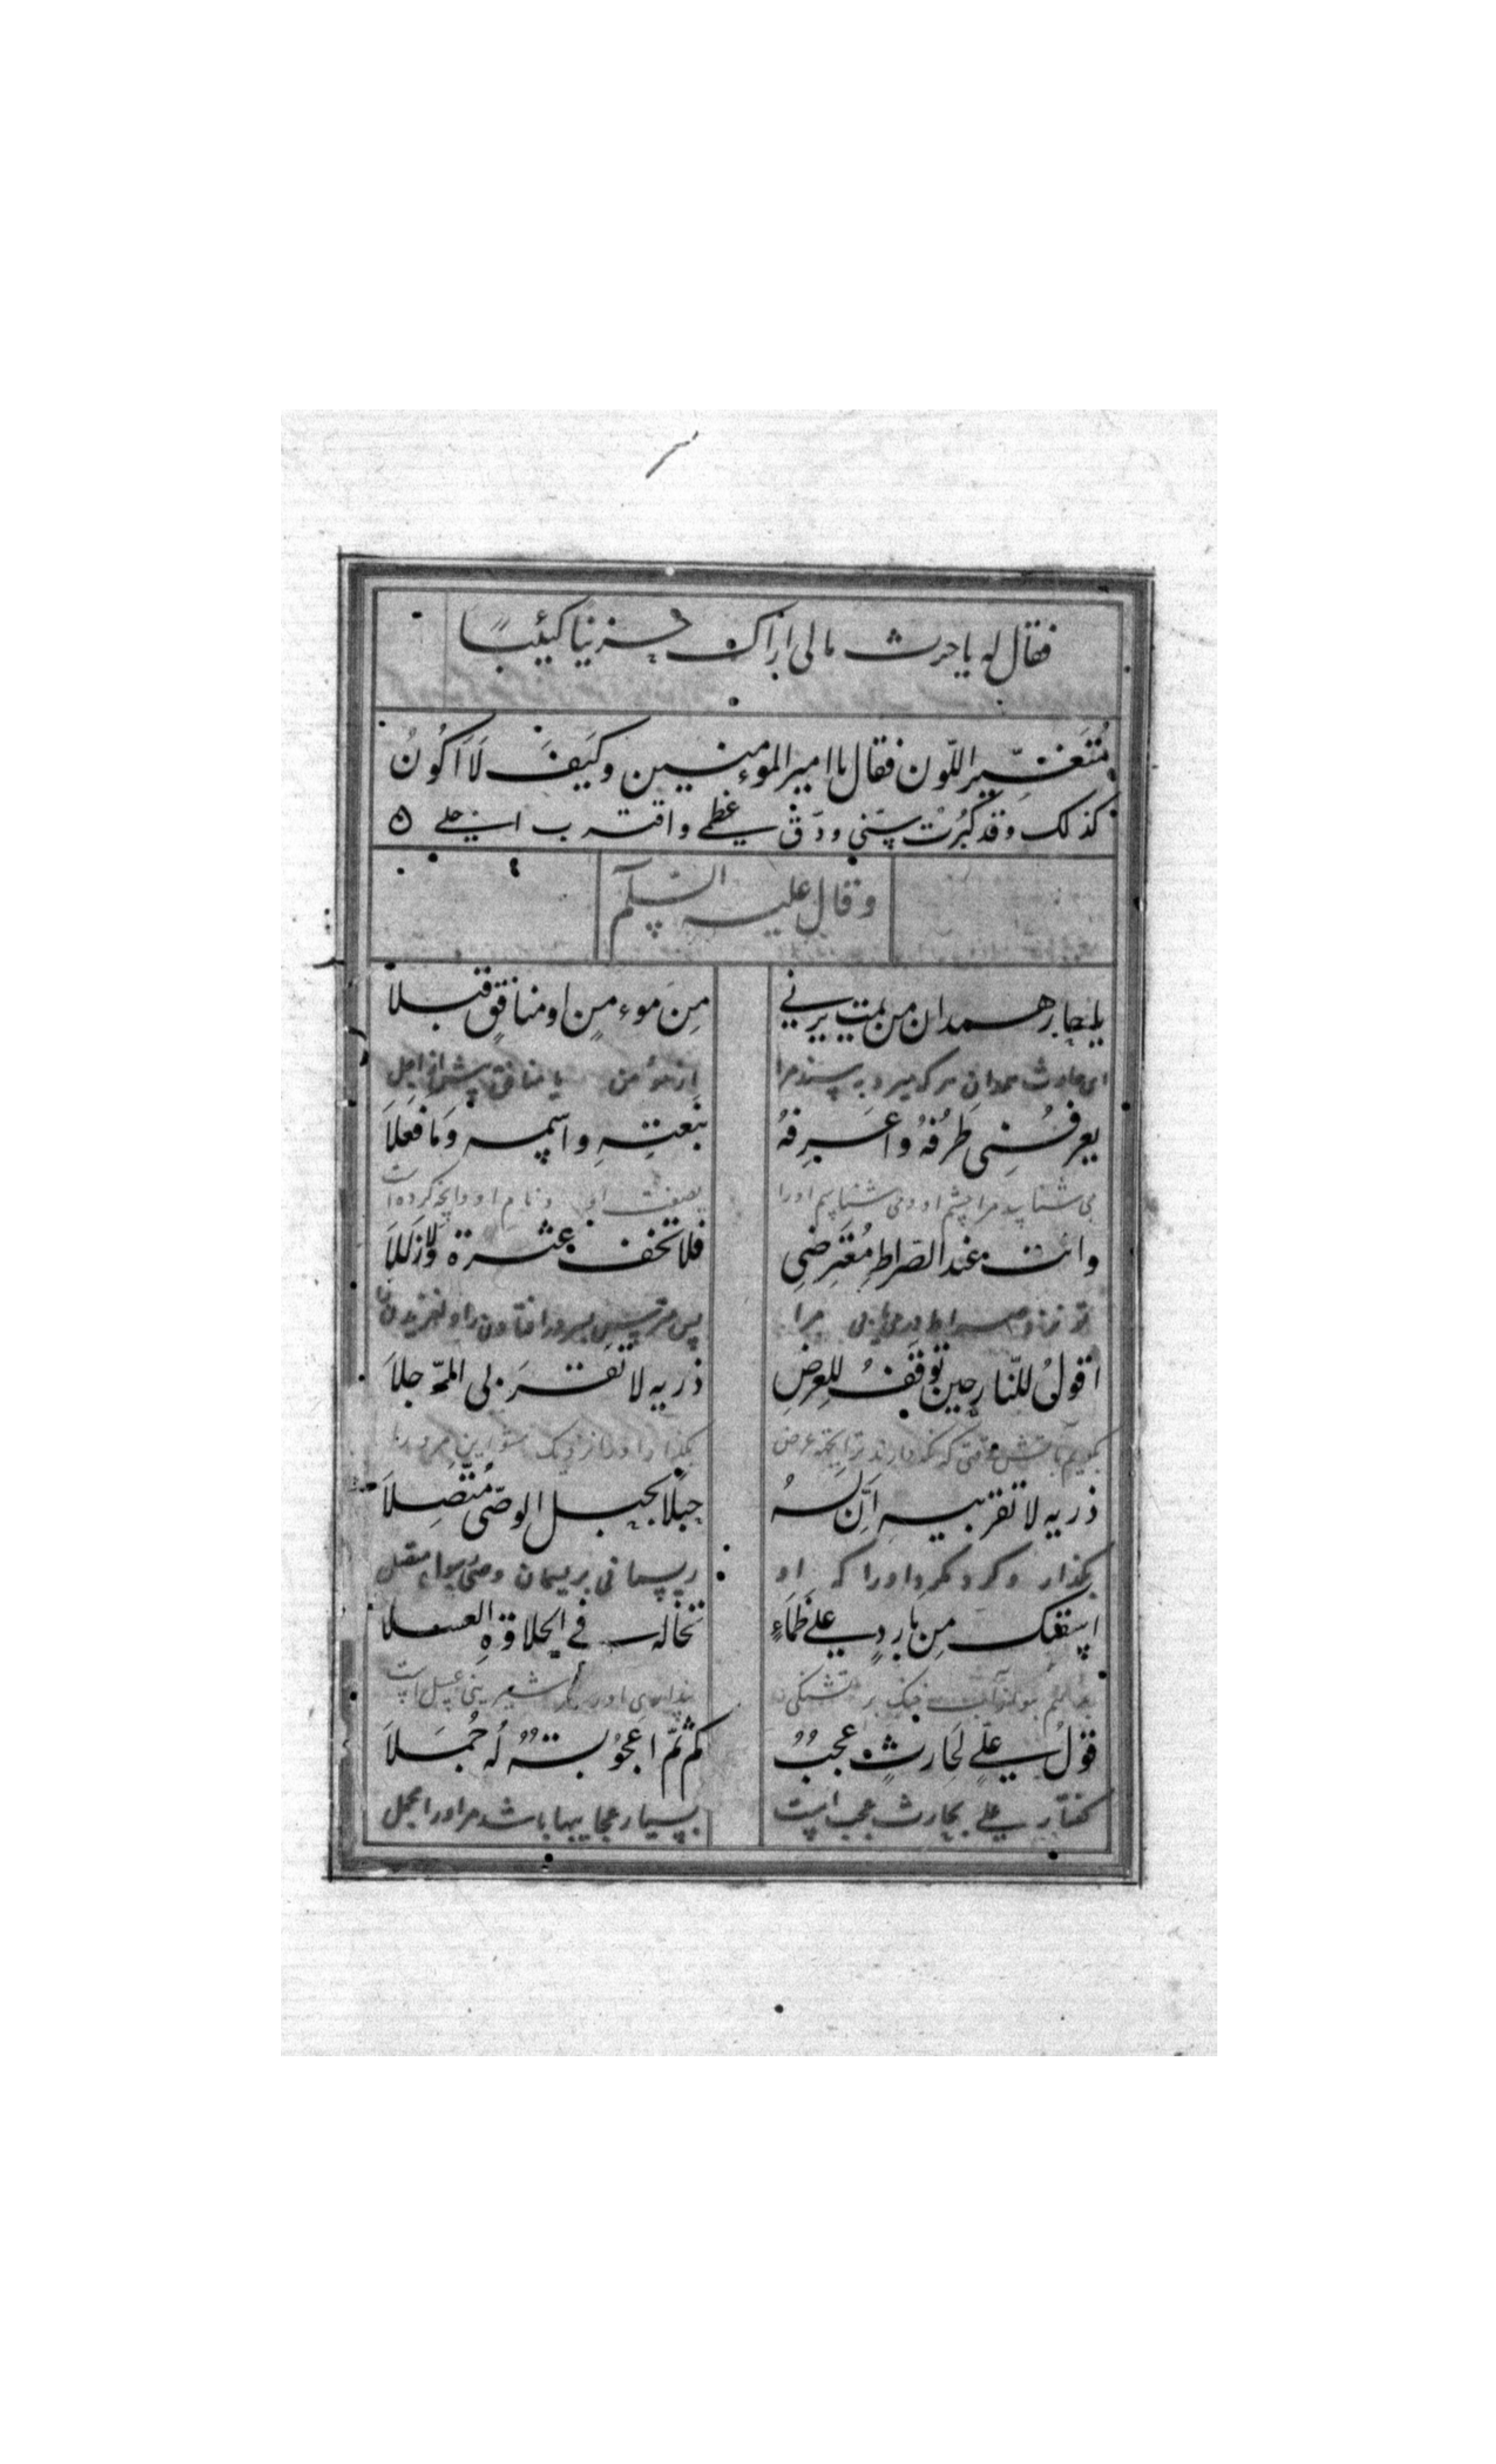 فقال له یا حرث مالی اراک حزینا کیئبًا
مُتَغَیِّر اللّون فقال یا امیر الموءمنین وکَیفَ لَا اَکُونُ
کذلک وقد کبُرَت سِنّی ودَقّ عظمے واقترب اجلے
وقال علیه السّلام
یا حار همدان من یمت یرنی مِن موءمنٍ او منافقٍ قبلَا
ای حارث همدان هر که میرد به بیند مرا از مؤمن یا منافق پیش از اجل
یعرفُنِی طرُفُهُ واعرِفهُ بنَعتِهِ واسمِه وَمَا فعَلَاَ
می شناسد مرا چشم او و می شناسم اورا بصفت او و نام او و آنچه کرده است
وانت عند الصّراطِ مُعْتَرِضِی فلا تخف عثرة وَلَا زَلَلَاَ
تو نزد صراط مرا پس مترس بسر در افتادن را و لغزیدن
اقولُ للنّار حِین توقَفُ للعرضِ ذریه لا تقرَبی المرّجلاَ
بگویم بآتش وقتی که نگه دارند ترا بجهة عرض بگذار او را نزدیک مشو این مرد را
ذریه لا تقربیه اِنَّ لَهُ حبلًا بحبل الوصّی مُتّصِلاَ
بگذار و گرد مگرد او را که او ریسمانی بریسمان وصی متصل
اسقیک مِن بارِدٍ علے ظمَاءٍ تخاله فے الحلاوَةِ العسلا
آب خنک بر تشنگی پنداری او را شیرینی عسل است
قولُ علےٍ لحارثٍ عجبٌ کم ثَمّ اعجُوبةٌ لُه جُمَلَاَ
گفتار علے بحارث عجب است بسیار عجایبها باشد مر او را مجمل